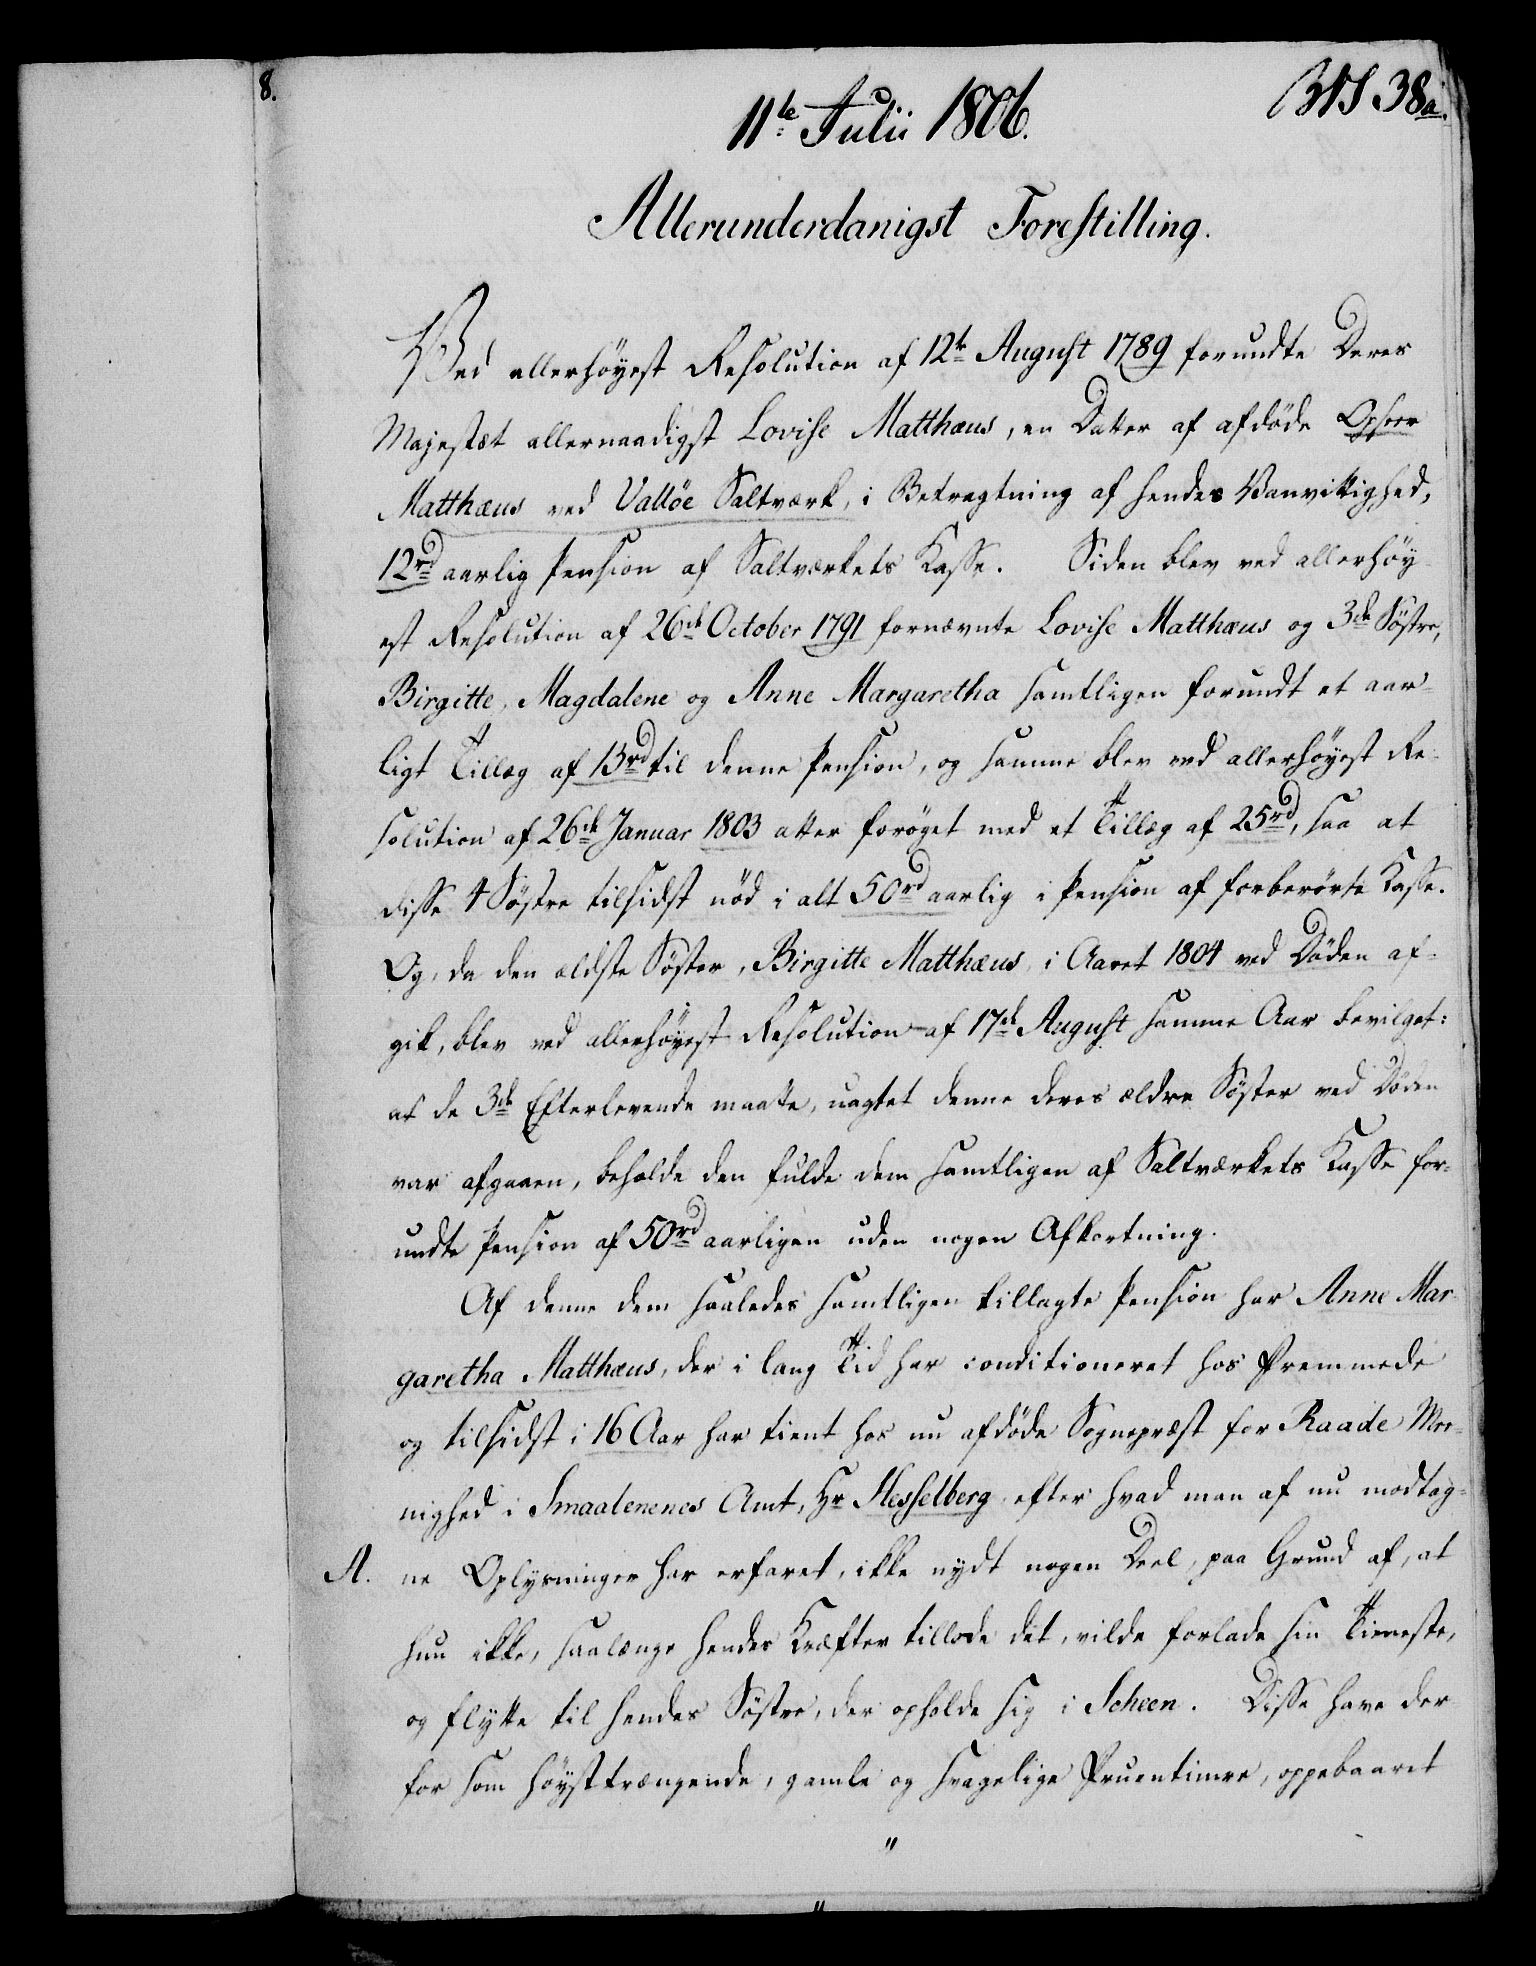 8.
11te Julii 1806.
38a.
Allerunderdanigst Forestilling.
Ved allerhöyest Resolution af 12te August 1789 forundte Deres
Majestæt allernaadigst Lovise Matthæus, en Datter af afdöde Opseer
Matthæus ved Vallöe Saltværk, i Betragtning af hendes Vanvittighed,
12rd aarlig Pension af Saltværkets Kasse. Siden blev ved allerhöy-
est Resolution af 26de October 1791 fornævnte Lovise Matthæus og 3de Söstre,
Birgitte, Magdalene og Anne Margaretha samtligen forundt et aar-
ligt Tillæg af 13rd til denne Pension, og samme blev ved allerhöyest Re-
solution af 26de Januar 1803 atter foröget med et Tillæg af 25rd, saa at
disse 4 Söstre tilsidst nöd i alt 50rd aarlig i Pension af forberörte Kasse.
Og, da den ældste Söster, Birgitte Matthæus, i Aaret 1804 ved Döden af-
gik, blev ved allerhöyest Resolution af 17de August samme Aar bevilget:
at de 3de Efterlevende maatte, uagtet denne deres ældre Söster ved Döden
var afgaaen, beholde den fulde dem samtligen af Saltværkets Kasse for-
undte Pension af 50rd aarligen uden nogen Afkortning.
Af denne dem saaledes samtligen tillagte Pension har Anne Mar-
garetha Matthæus, der i lang Tid har conditioneret hos Fremmede
og tilsidst i 16 Aar har tient hos nu afdöde Sognepræst for Raade Me-
nighed i Smaalenenes Amt, Hr Hesselberg efter hvad man af nu modtag-
A. ne Oplysninger har erfaret, ikke nydt nogen Deel, paa Grund af, at
hun ikke, saalænge hendes Kræfter tillode det, vilde forlade sin Tieneste,
og flytte til hendes Söstre, der opholde sig i Scheen. Disse have der-
for som höysttrængende, gamle og svagelige Fruentimre, oppebaaret
"
"